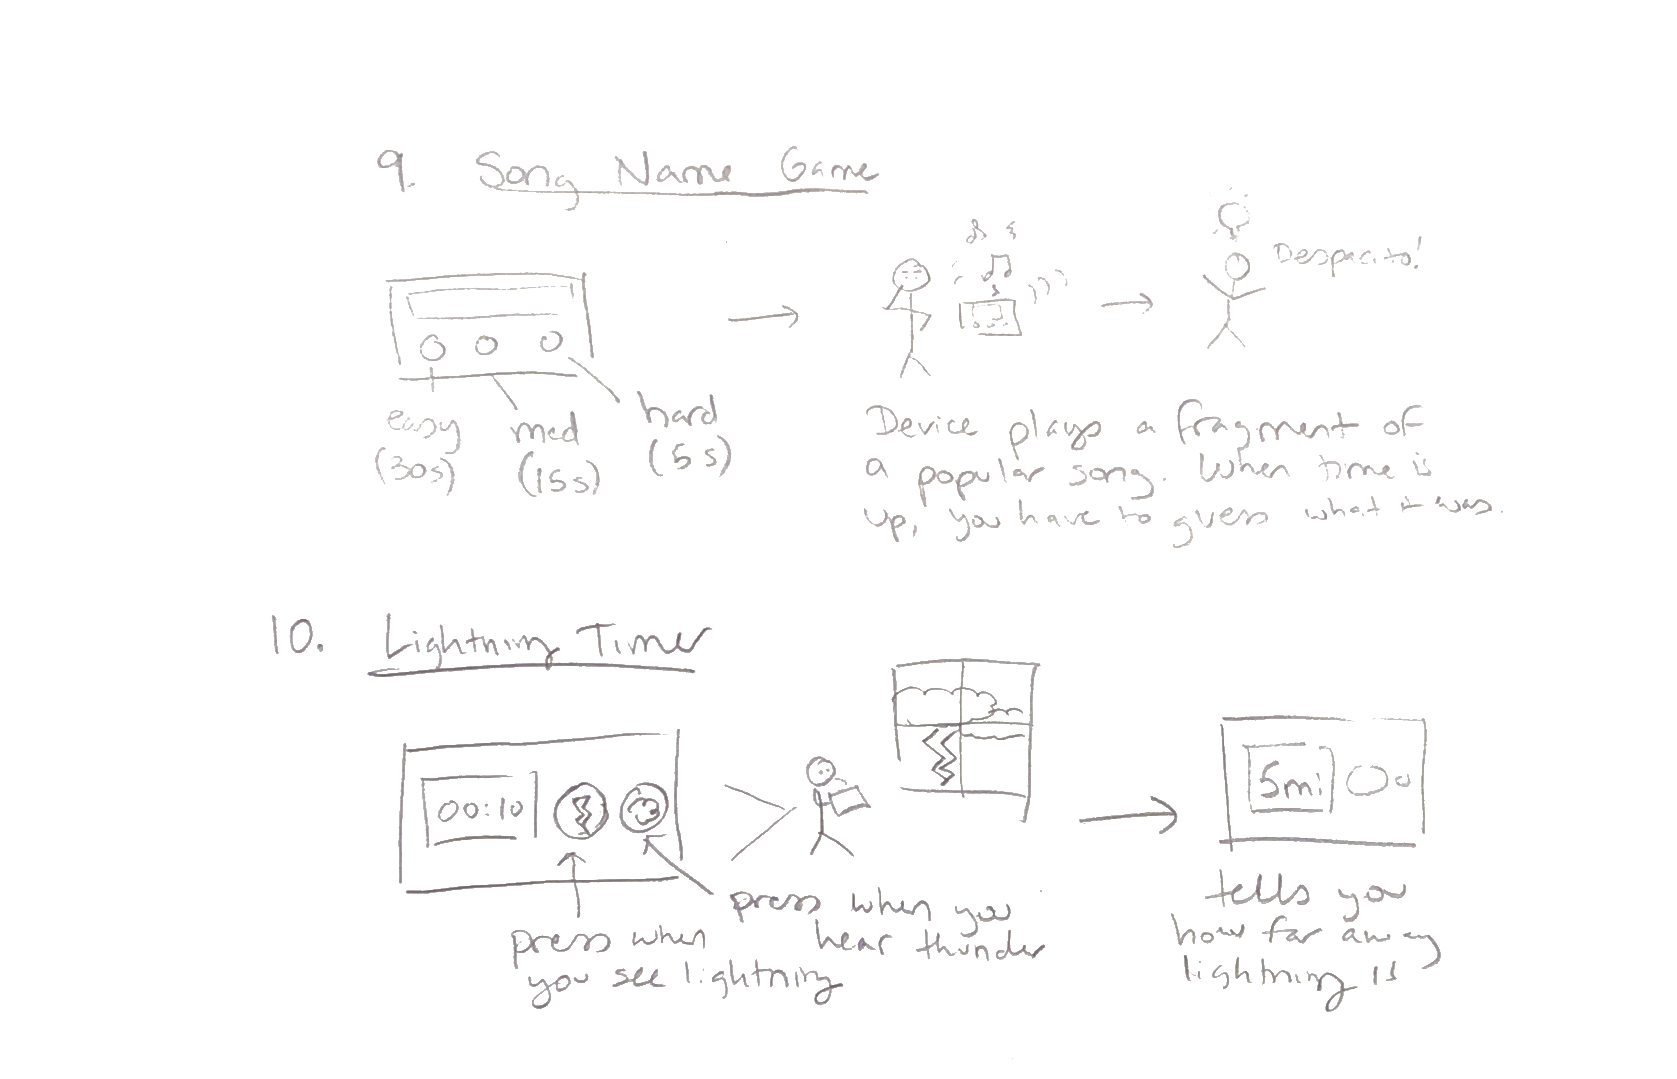 9. Song Name Game
Despacito!
easy
(30s)
med
(15s)
hard
(5s)
Device plays a fragment of
a popular song. When time is
up, you have to guess what it was.
10. Lightning Timer
00:10
5mi
press when
you see lightning
press when you
hear thunder
tells you
how far away
lightning is